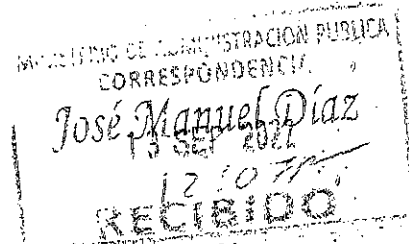 MINISTERIO DE ADMINISTRACION PUBLICA
CORRESPONDENCIA
José Manuel Díaz
13 SEP 2021
RECIBIDO